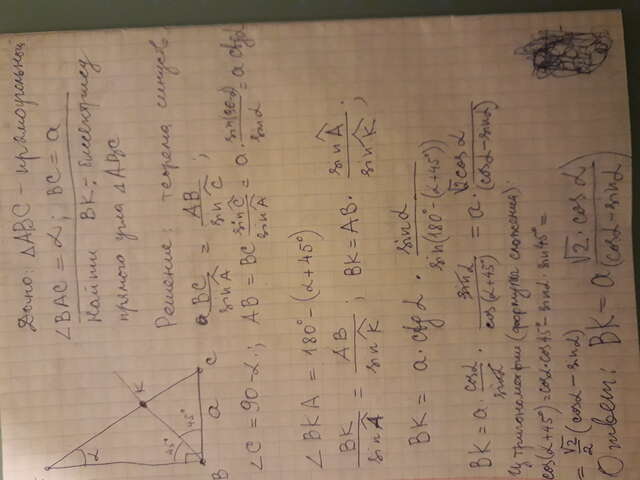 Дано: △ABC – прямоугольный
∠BAC = α; BC = a
Найти BK – биссектрису
прямого угла △ABC
α
K
45°
45°
B
a
C
Решение: теорема синусов
BC/sin Â = AB/sin Ĉ ;
∠C = 90-α.; AB = BC sin Ĉ/sin Â = a · sin(90-α)/sin α = a ctg α
∠BKA = 180° - (α+45°)
BK/sin Â = AB/sin K̂ ; BK = AB · sin Â/sin K̂ ;
BK = a · ctg α · sin α/sin(180° - (α+45°))
BK = a · cos α/sin α · sin α/cos(α+45°) = a · √2 cos α/(cos α - sin α)
Из тригонометрии (формулы сложения):
cos(α+45°) = cos α · cos 45° - sin α · sin 45° =
= √2/2 (cos α - sin α)
Ответ: BK = a √2 · cos α/(cos α - sin α)